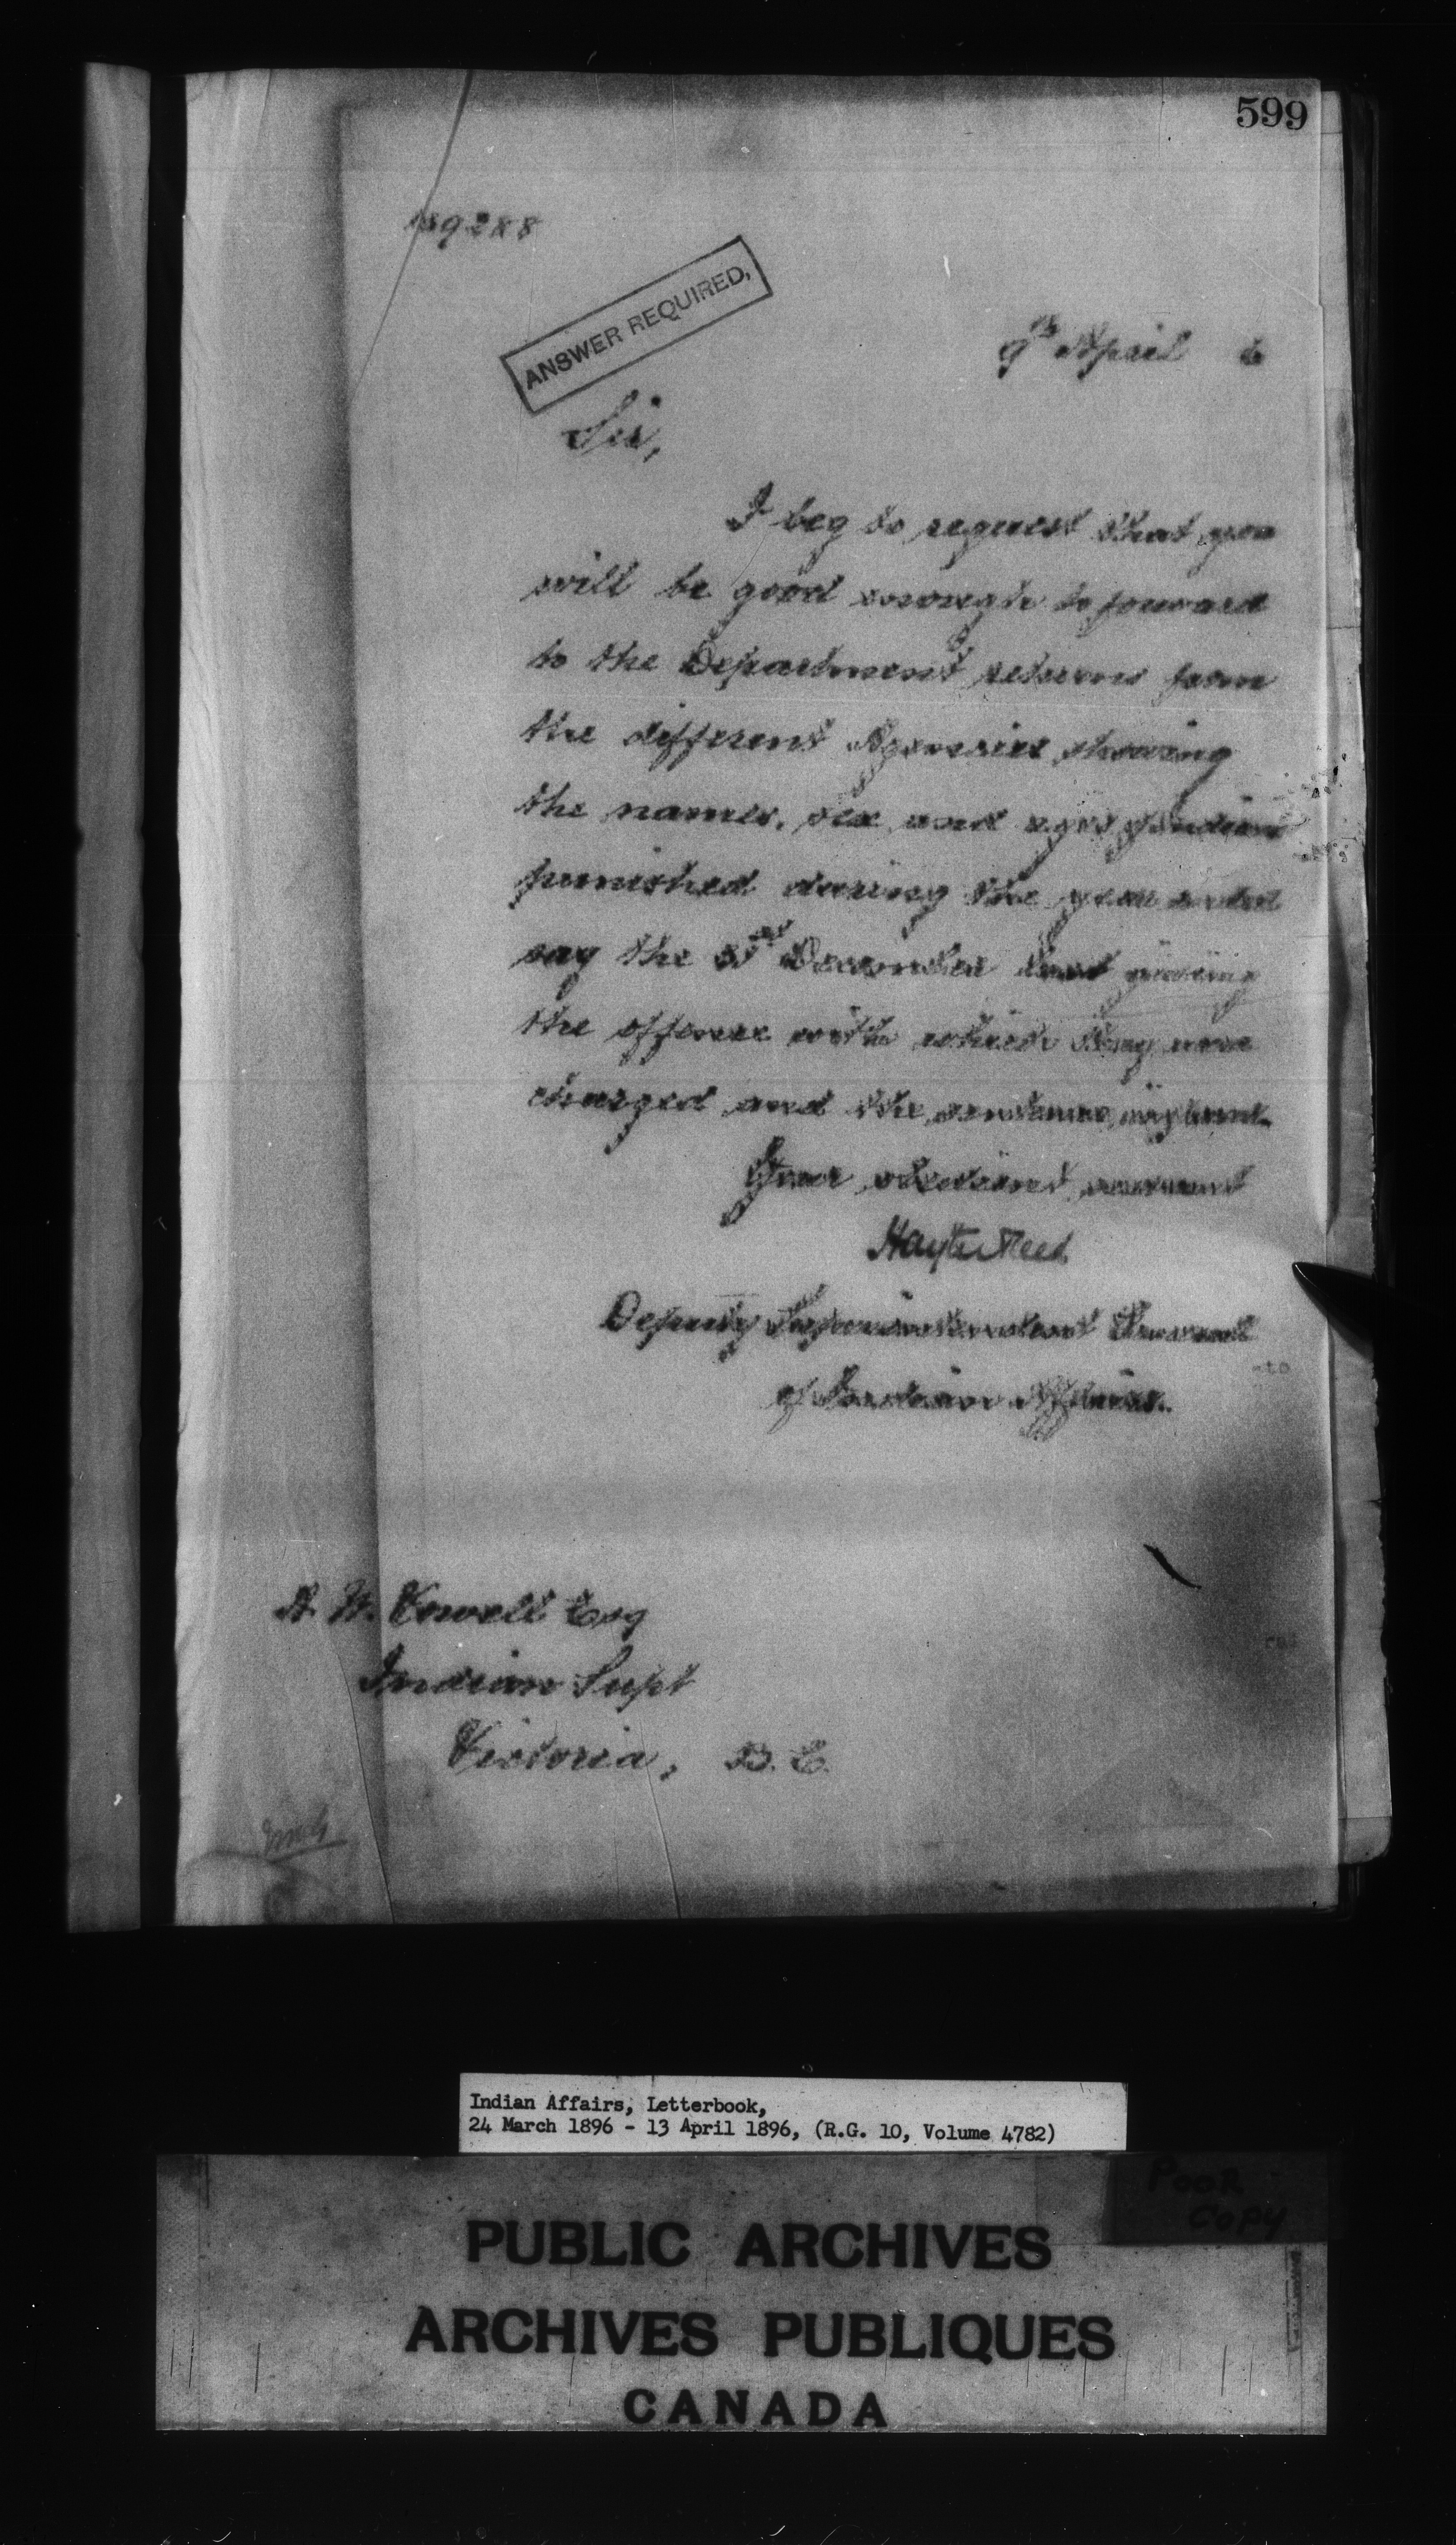 599
189288
ANSWER REQUIRED,
9th April 6
Sir,
I beg to request that you
will be good enough to forward
to the Department returns from
the different Agencies showing
the names, sex and ages of Indians
punished during the year ended
say the 31st December last giving
the offence with which they were
charged and the sentence
Your obedient servant
Hayter Reed
Deputy Superintendent General
of Indian Affairs.
A. W. Vowell Esq
Indian Supt
Victoria, B.C.
Indian Affairs, Letterbook,
24 March 1896 - 13 April 1896, (R.G. 10, Volume 4782)
POOR
COPY
PUBLIC ARCHIVES
ARCHIVES PUBLIQUES
CANADA